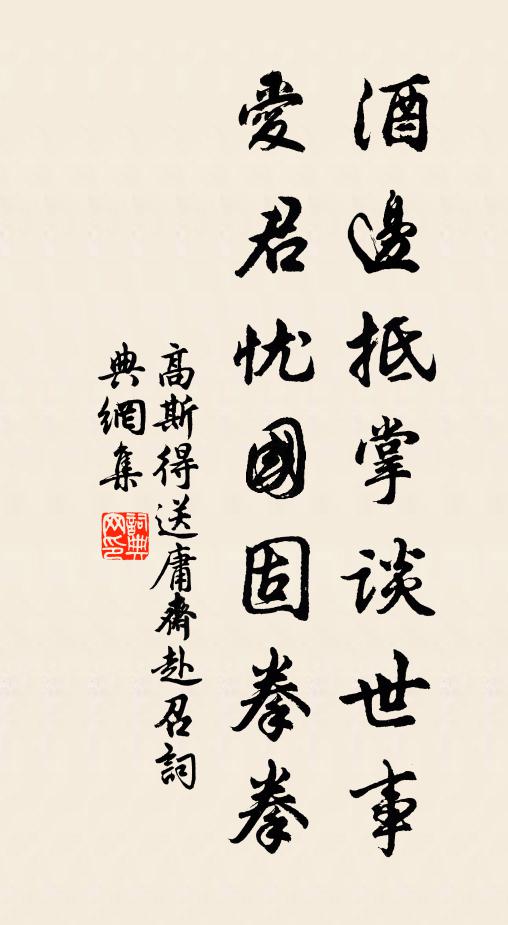 酒邊抵掌談世事
愛君忧國固拳拳
高斯得送庸齋赴召詞
典網集
詞典網印